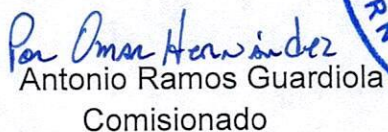 Por Omar Hernández
Antonio Ramos Guardiola
Comisionado